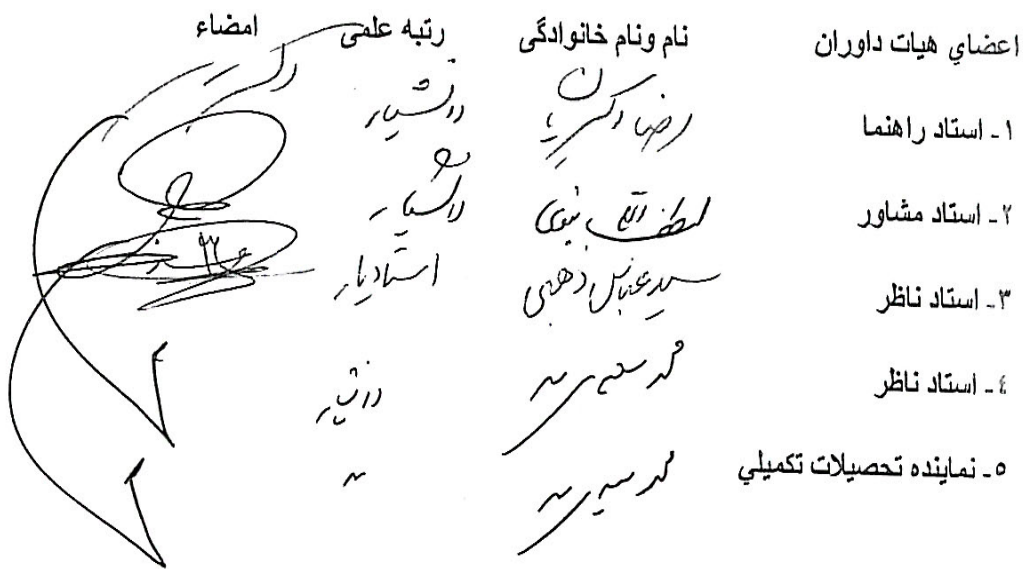 اعضاي هيات داوران نام ونام خانوادگی رتبه علمی امضاء
۱ـ استاد راهنما رضا دانشیار
۲ـ استاد مشاور دانشیار
۳ـ استاد ناظر سید عباس ذهبی استادیار
٤ـ استاد ناظر محمد سعیدی مهر دانشیار
٥ـ نماینده تحصیلات تکمیلي محمد سعیدی مهر